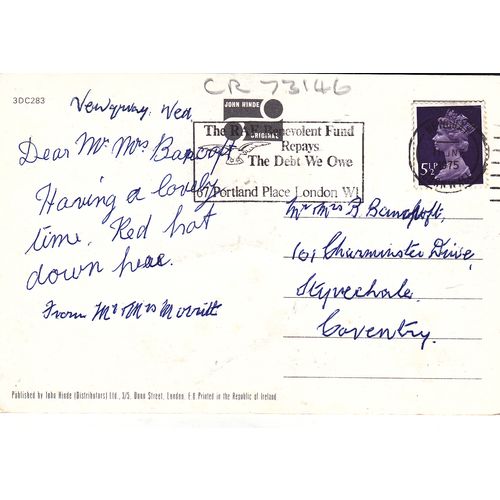 CR 73146
3DC283
JOHN HINDE
ORIGINAL
The RAF Benevolent Fund
Repays
The Debt We Owe
67 Portland Place London W1
5½P
Newquay. Wed
Dear Mr. Mrs Bancroft
Having a lovely
time. Red hot
down here.
From Mr & Mrs Morritt
Mr & Mrs B Bancroft,
101, Charminster Drive,
Styvechale.
Coventry.
Published by John Hinde (Distributors) Ltd., 3/5, Dunn Street, London, E.8 Printed in the Republic of Ireland